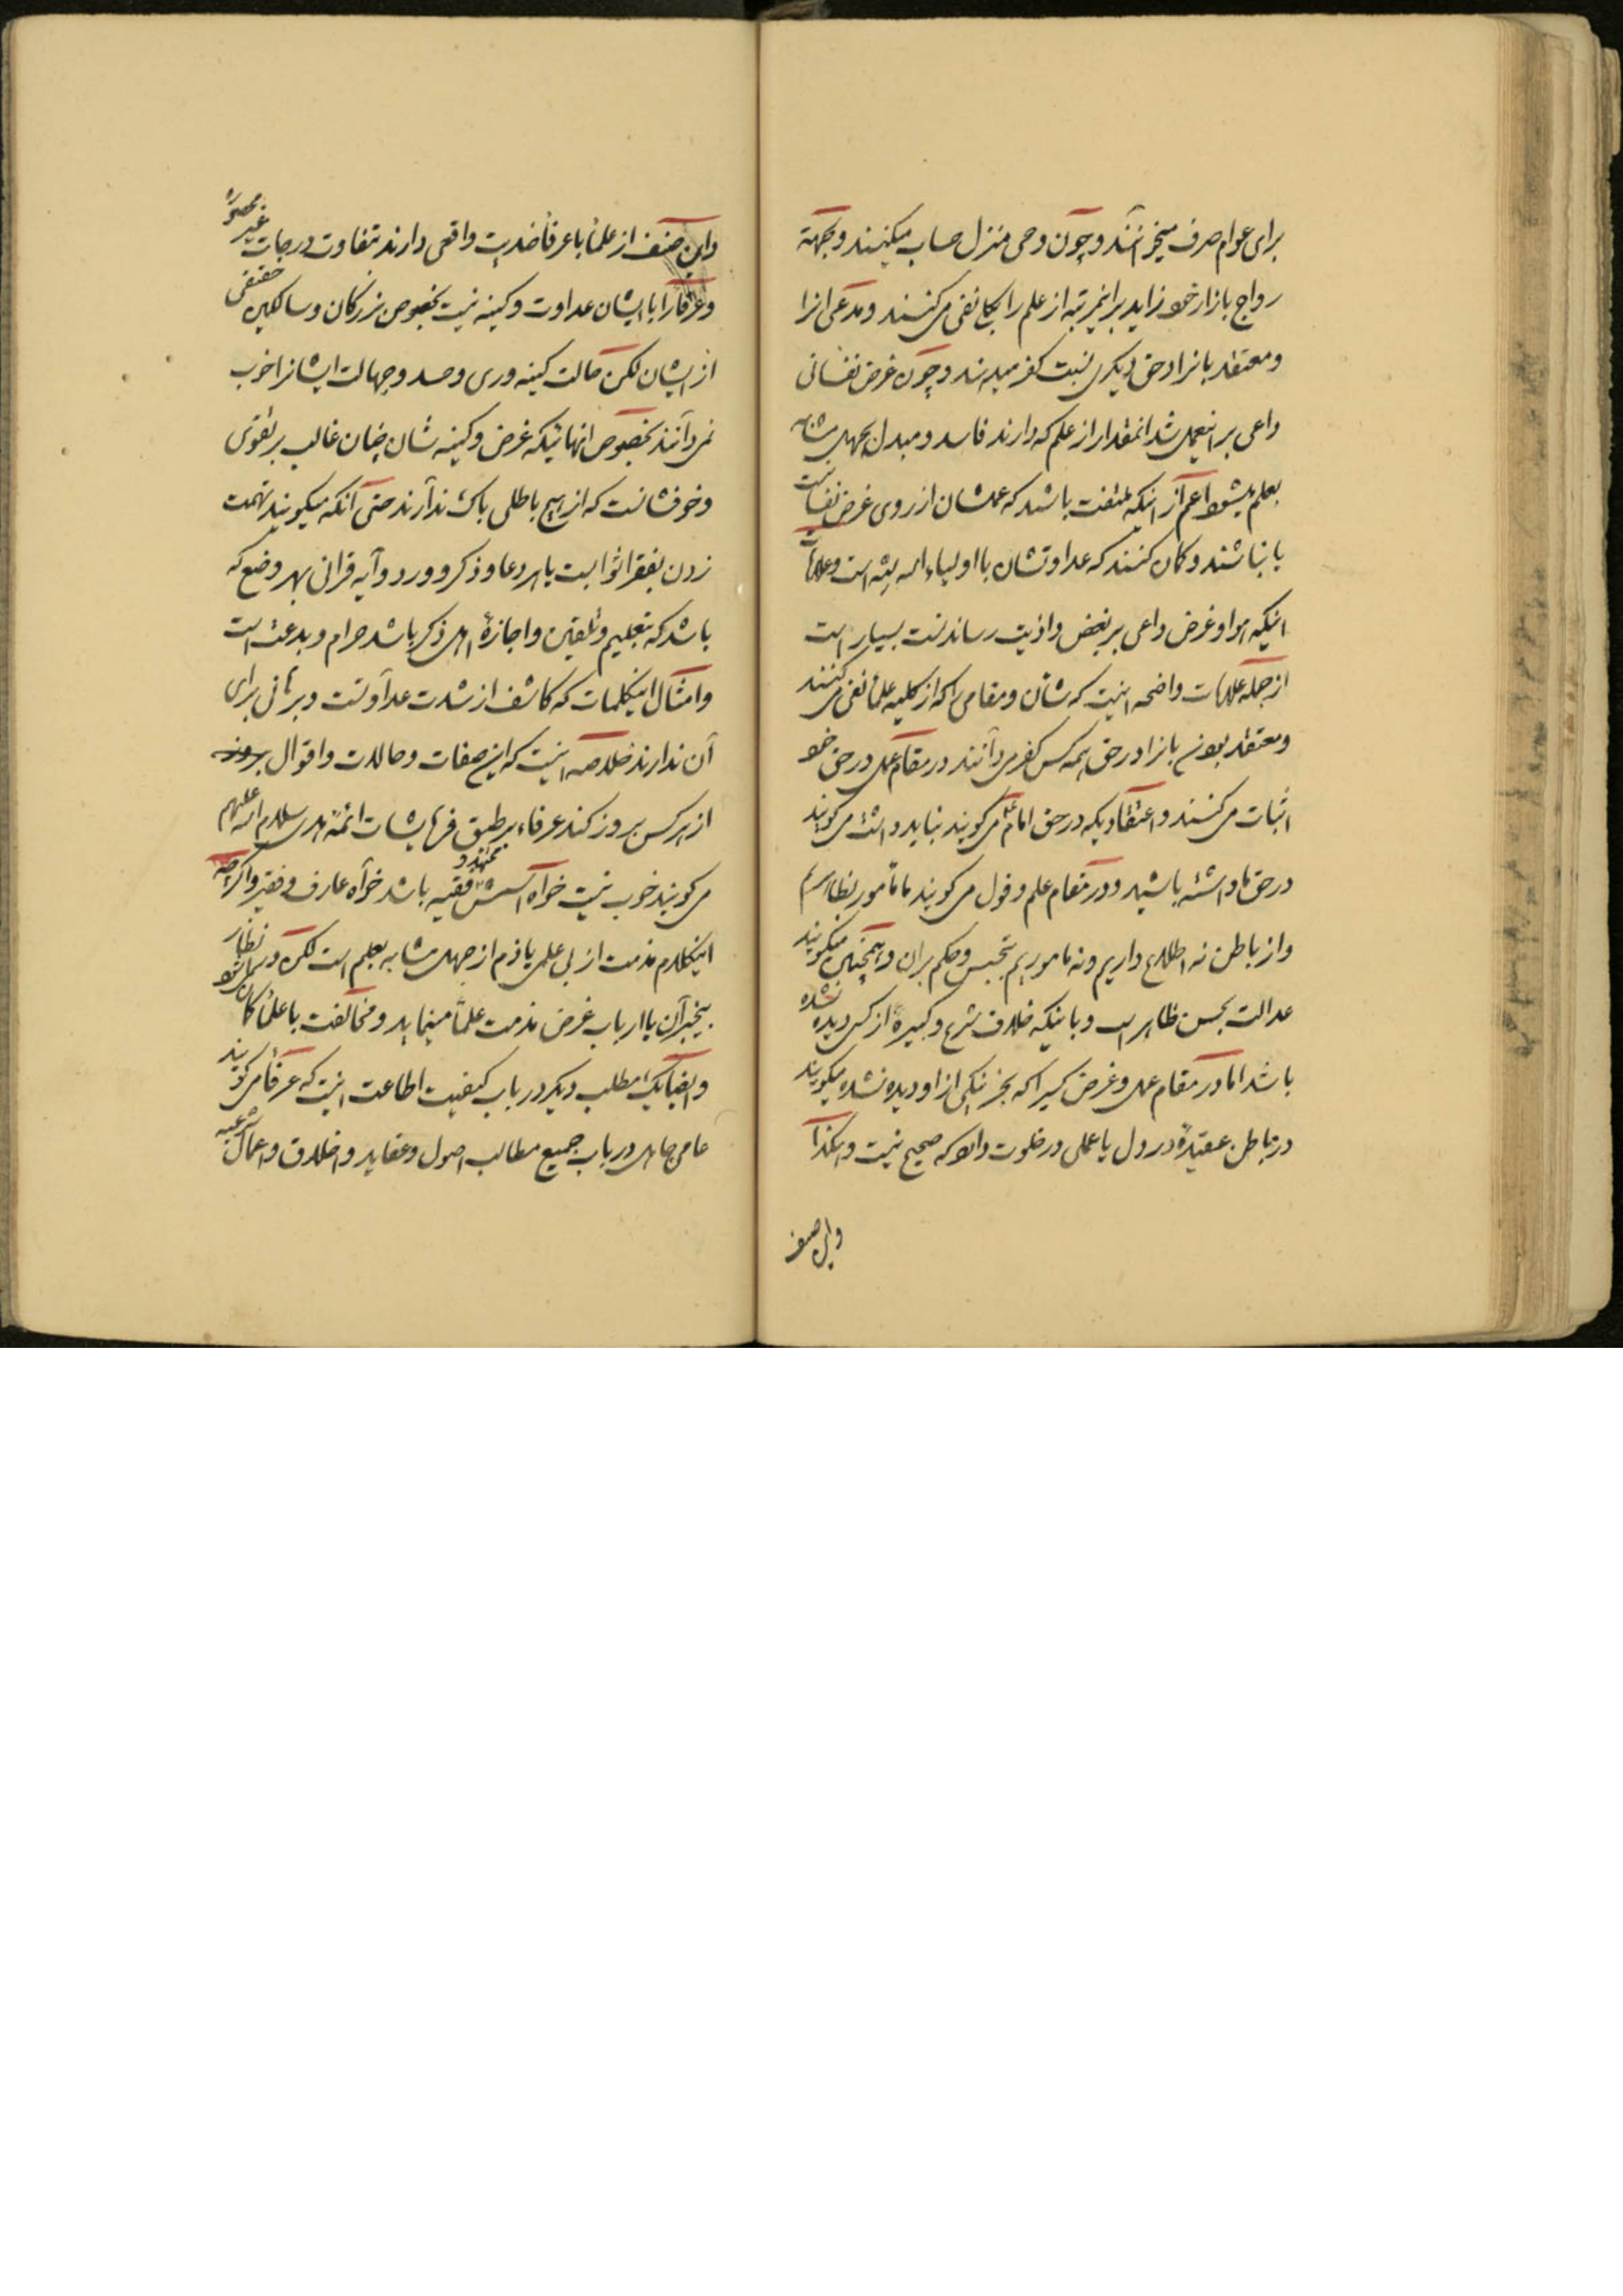 برای عوام صرف میخوانند و چون وحی منزل حساب میکنند و بجهة
رواج بازار خود زاید بر اینمرتبه از علم را بکلی نفی می کنند و مدعی انرا
و معتقد بانرا در حق دیگری نسبت کفر میدهند و چون غرض نفسانی
داعی بر اینعمل شد انمقدار از علم که دارند فاسد و مبدل بجهل مشابه
بعلم میشود اعم از اینکه ملتفت باشند که عملشان از روی غرض نفسانیت
یا نباشند و گمان کنند که عداوتشان با اولیاء الله لله است و علامت
اینکه هوا و غرض داعی بر بغض و اذیت رساندنست بسیار است
از جمله علامات واضحه اینست که شأن و مقامی را که از کلیه علما نفی می کنند
و معتقد بودن بانرا در حق همه کس کفر می دانند در مقام عمل در حق خود
اثبات می کنند و اعتقادیکه در حق امام ع می گویند نباید داشت می گویند
در حق ما داشته باشید و در مقام علم و قول می گویند ما مأمور بظاهریم
و از باطن نه اطلاع داریم و نه ماموریم بتجسس و حکم بران و همچنین میگویند
عدالت بحسن ظاهر است و باینکه خلاف شرع و کبیرهٔ از کسی دیده نشده
باشد اما در مقام عمل و غرض کسیرا که بجز نیکی از او دیده نشده میگویند
در باطن عقیدهٔ در دل یا عملی در خلوت دارد که صحیح نیست و هکذا
و این صنف
و این صنف از علما با عرفا ضدیت واقعی دارند بتفاوت درجات غیر محصوره
و عرفا را با ایشان عداوت و کینه نیست بخصوص بزرگان و سالکین حقیقی
از ایشان لکن حالت کینه وری و حسد و جهالت ایشانرا خوب
نمی دانند بخصوص انهائیکه غرض و کینه شان چنان غالب بر تقوی
و خوفشانست که از هیچ باطلی باک ندارند حتی آنکه میگویند تهمت
زدن بفقرا ثوابست یا هر دعا و ذکر و ورد و آیه قرانی بهر وضع که
باشد که بتعلیم و تلقین و اجازهٔ اهل ذکر باشد حرام و بدعت است
و امثال اینکلمات که کاشف از شدت عداوتست و برهانی برای
آن ندارند خلاصه اینست که این صفات و حالات و اقوال بروز
از هر کس بروز کند عرفاء بر طبق فرمایشات ائمهٔ هدی سلام الله علیهم
می گویند خوب نیست خواه آنکس مجتهد و فقیه باشد خواه عارف و فقیر و اگر چه
اینکلام مذمت از بی علمی یا ذم از جهل مشابه بعلم است لکن در انظار
بیخبران یا ارباب غرض مذمت علما مینماید و مخالفت با علما گمان میشود
و ایضا یک مطلب دیگر در باب کیفیت اطاعت اینست که عرفا می گویند
عامی جاهل در باب جمیع مطالب اصول و عقاید و اخلاق و اعمال شرعیه